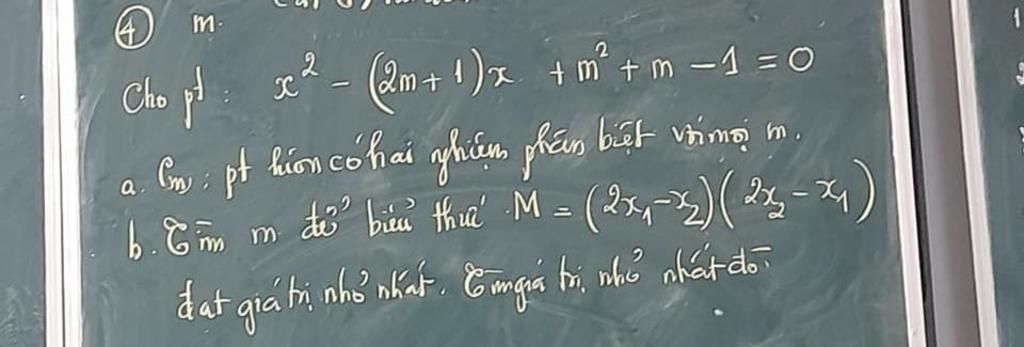 ④ m.
Cho pt: x² - (2m+1)x + m² + m - 1 = 0
a. Cm: pt luôn có hai nghiệm phân biệt với mọi m.
b. Tìm m để biểu thức M = (2x₁-x₂)(2x₂-x₁)
đạt giá trị nhỏ nhất. Tìm giá trị nhỏ nhất đó.